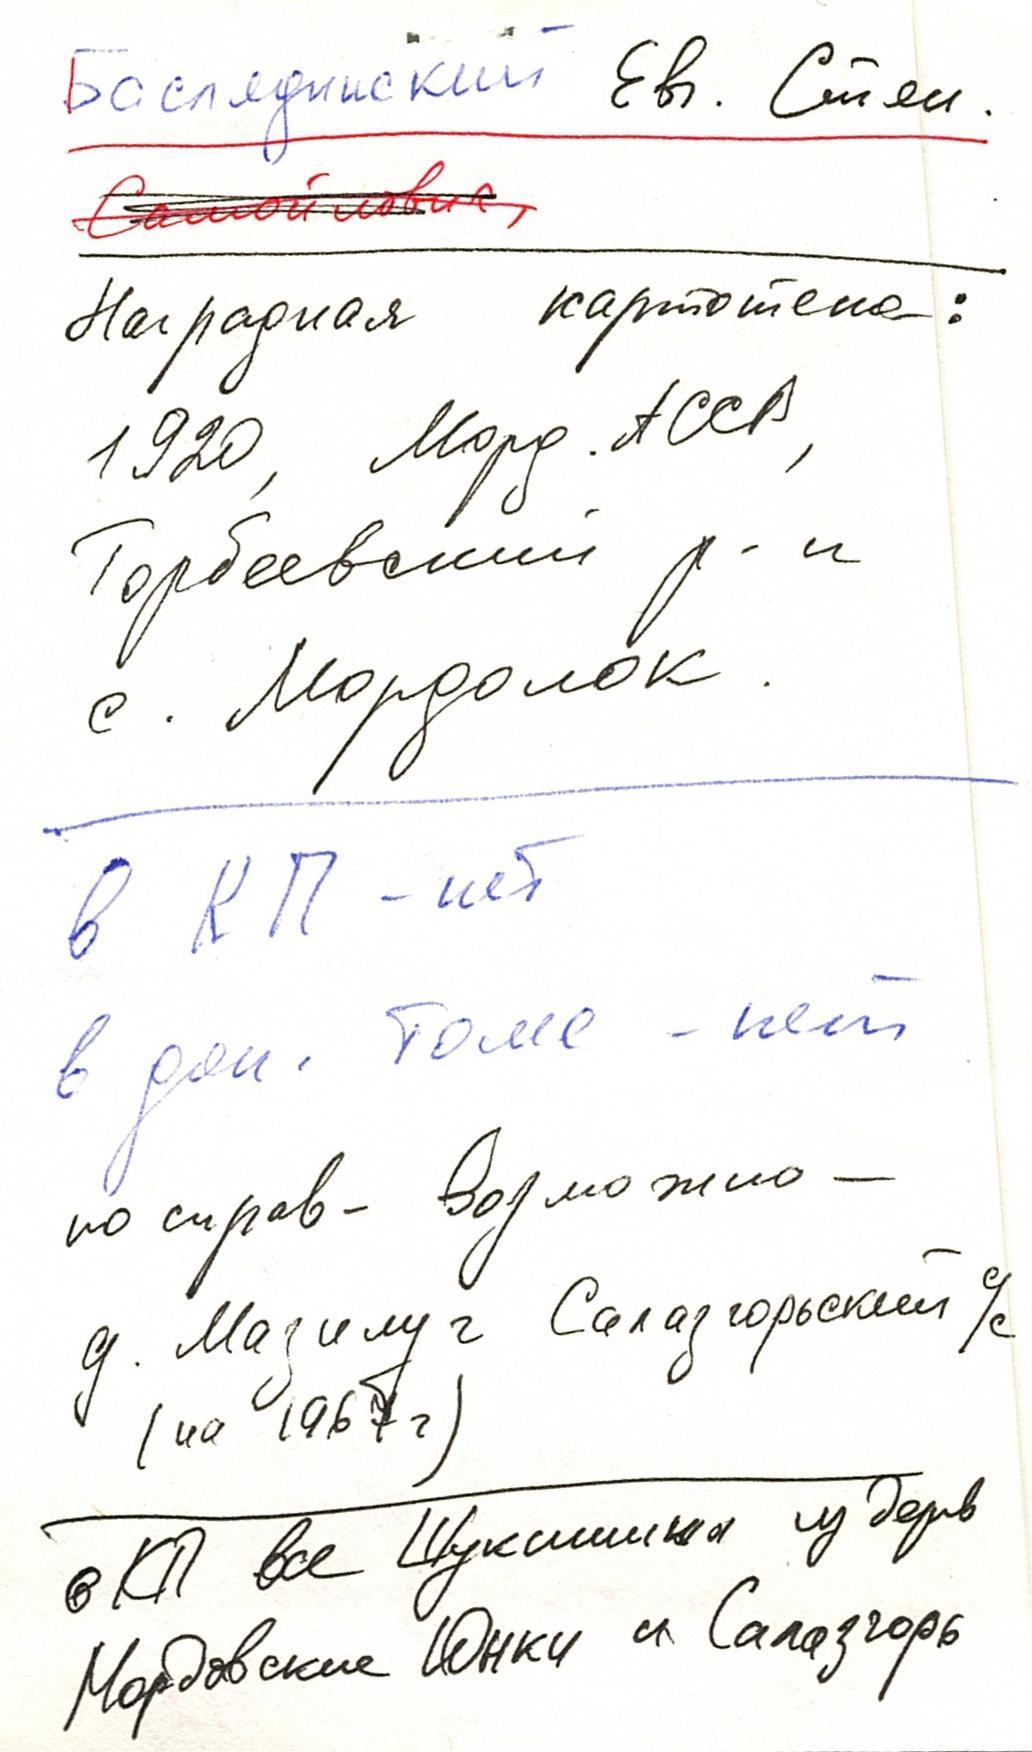 Баслядинский Евг. Степ.
Самойлович,
Наградная картотека:
1920, Морд. АССР,
Торбеевский р-н
с. Мордолок.
в КП - нет
в доп. томе - нет
по справ - Возможно —
д. Мазилуг Салазгорьский с/с
(на 1967 г)
в КП все Щукшины из дерв
Мордовские Юнки и Салазгорь